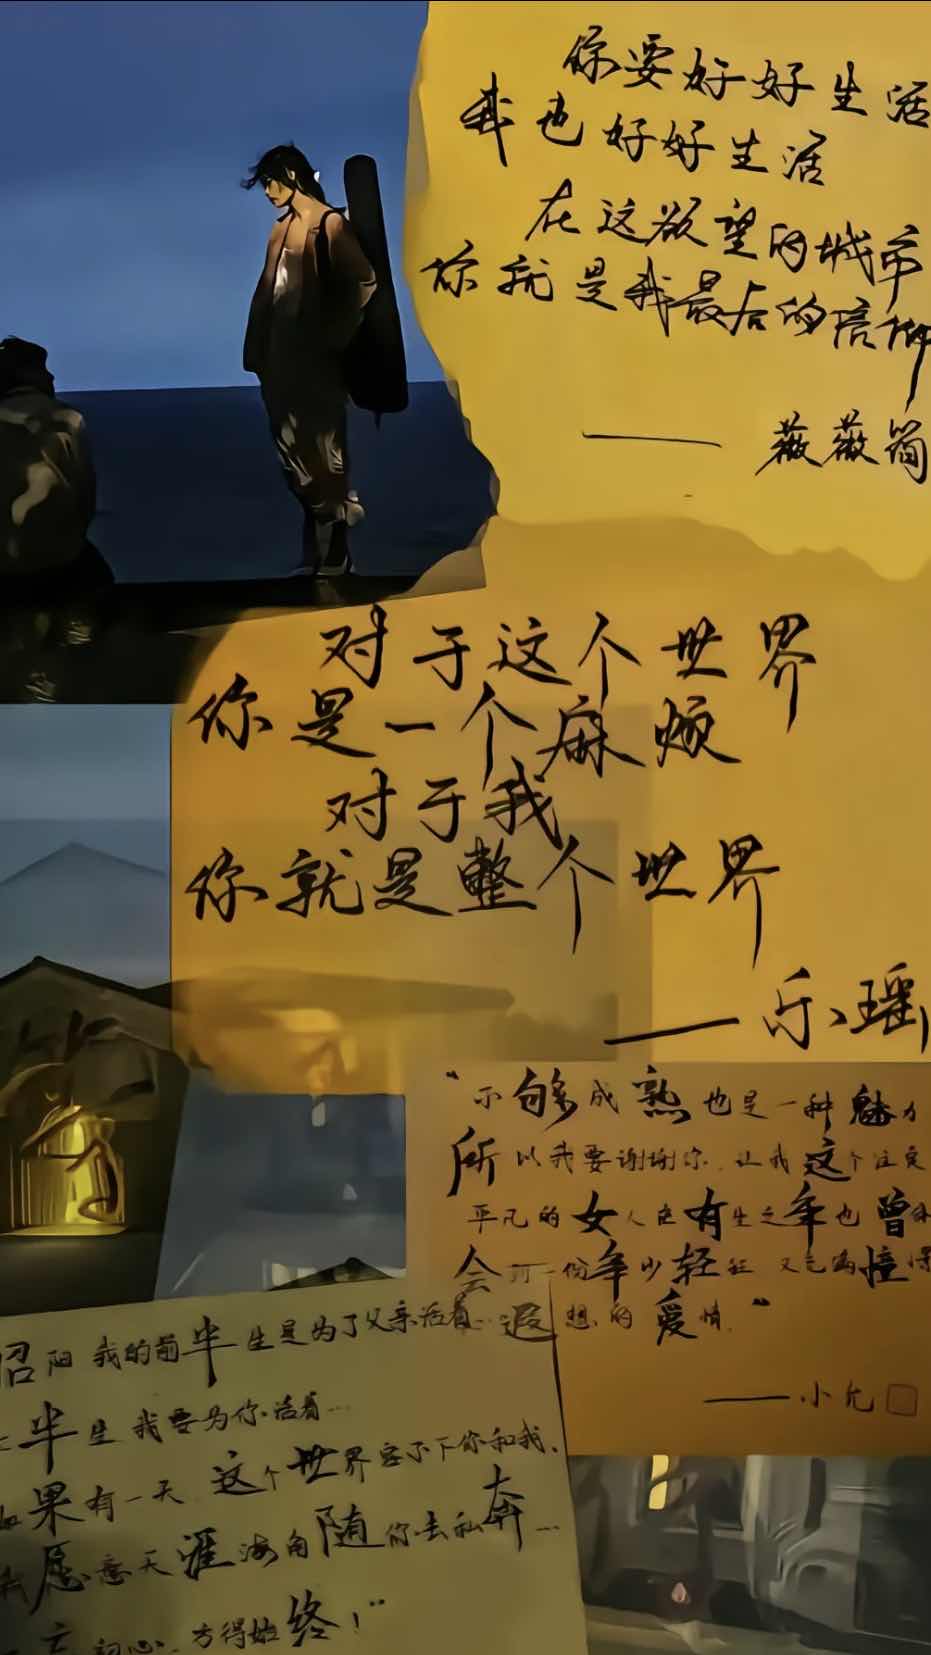 你要好好生活
我也好好生活
在这欲望的城市
你就是我最后的信仰
—— 薇薇简
对于这个世界
你是一个麻烦
对于我
你就是整个世界
—— 乐瑶
“不够成熟也是一种魅力
所以我要谢谢你 让我这个注定
平凡的女人在有生之年也曾
会到一份年少轻狂 又充满憧憬
遐想的爱情”
—— 小允
昭阳 我的前半生是为了父亲活着...
半生我要为你活着...
如果有一天 这个世界容不下你和我，
我愿意天涯海角随你去私奔...
忘初心，方得始终！”